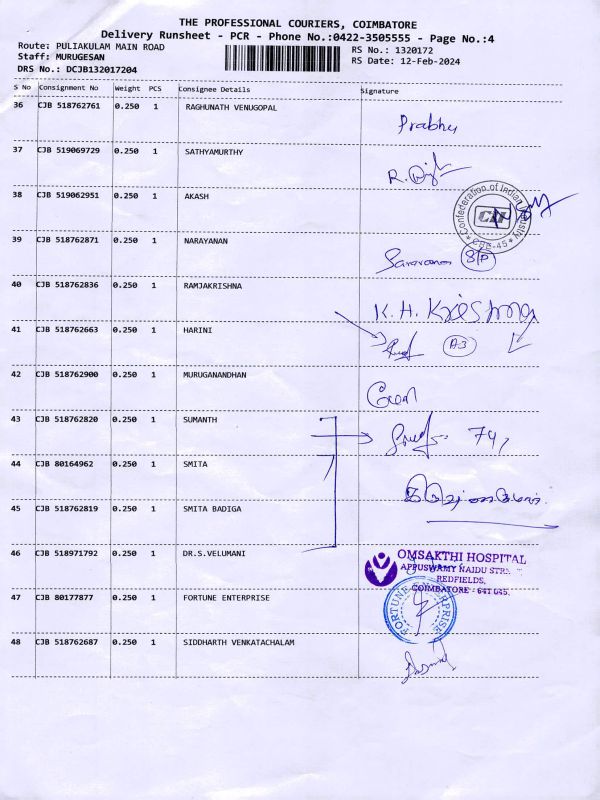 THE PROFESSIONAL COURIERS, COIMBATORE
Delivery Runsheet - PCR - Phone No.:0422-3505555 - Page No.:4
Route: PULIAKULAM MAIN ROAD
RS No.: 1320172
Staff: MURUGESAN
RS Date: 12-Feb-2024
DRS No.: DCJB132017204
S No Consignment No Weight PCS Consignee Details Signature
36 CJB 518762761 0.250 1 RAGHUNATH VENUGOPAL
Prabhu
37 CJB 519069729 0.250 1 SATHYAMURTHY
38 CJB 519062951 0.250 1 AKASH
Confederation of Indian Industry
CII
CBE-45
39 CJB 518762871 0.250 1 NARAYANAN
Saravanan S/P
40 CJB 518762836 0.250 1 RAMJAKRISHNA
K. H. Krishna
41 CJB 518762663 0.250 1 HARINI
A3
42 CJB 518762900 0.250 1 MURUGANANDHAN
43 CJB 518762820 0.250 1 SUMANTH
44 CJB 80164962 0.250 1 SMITA
45 CJB 518762819 0.250 1 SMITA BADIGA
46 CJB 518971792 0.250 1 DR.S.VELUMANI
OMSAKTHI HOSPITAL
APPUSWAMY NAIDU
REDFIELDS,
COIMBATORE - 641 045.
47 CJB 80177877 0.250 1 FORTUNE ENTERPRISE
FORTUNE ENTERPRISE
48 CJB 518762687 0.250 1 SIDDHARTH VENKATACHALAM